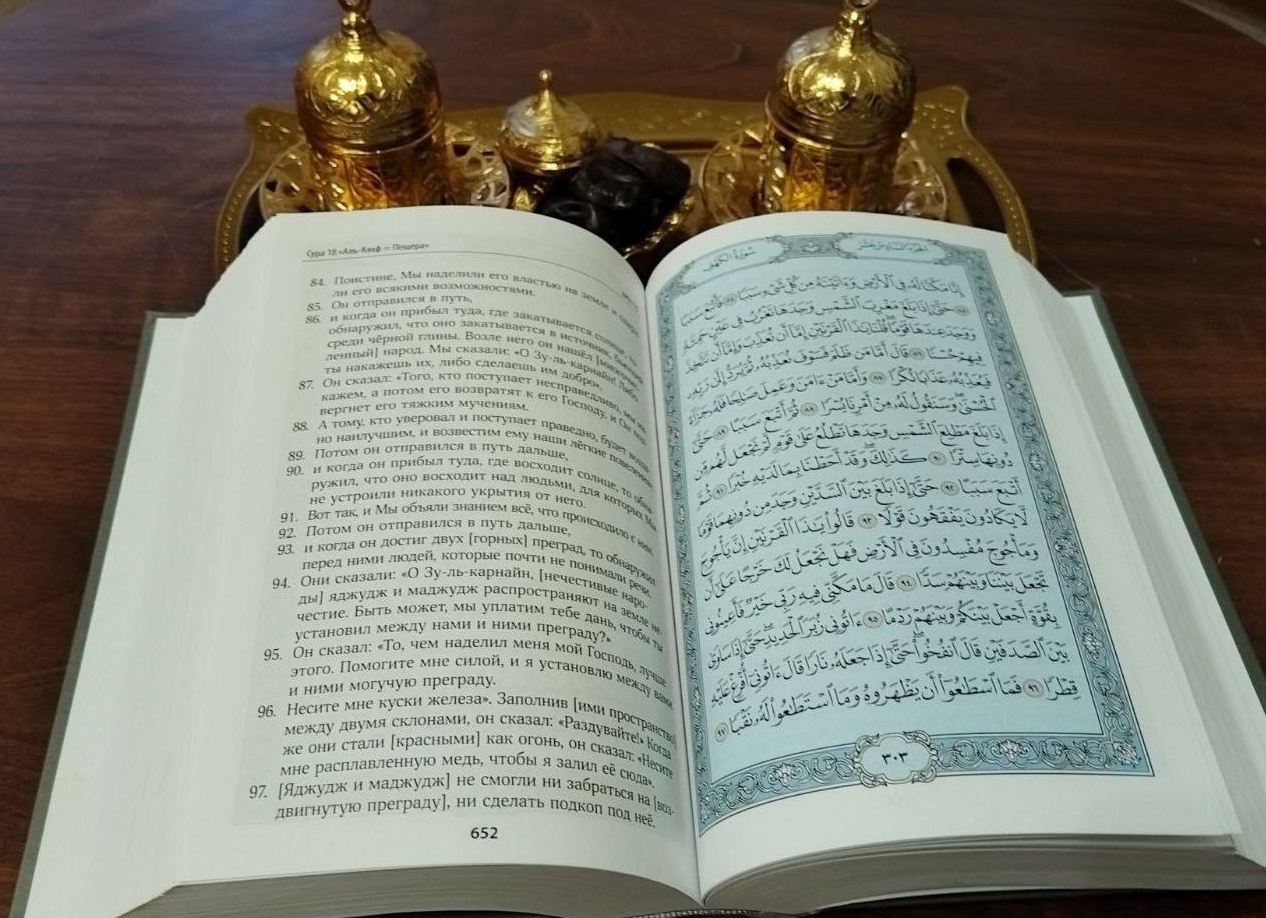 Сура 18 «Аль-Кахф — Пещера»
84. Поистине, Мы наделили его властью на земле и
ли его всякими возможностями.
85. Он отправился в путь,
86. и когда он прибыл туда, где закатывается солнце, то
обнаружил, что оно закатывается в источник,
среди чёрной глины. Возле него он нашёл
ленный] народ. Мы сказали: «О Зу-ль-карнайн! Либо
ты накажешь их, либо сделаешь им добро».
87. Он сказал: «Того, кто поступает несправедливо, мы на-
кажем, а потом его возвратят к его Господу, и Он под-
вергнет его тяжким мучениям.
88. А тому, кто уверовал и поступает праведно, будет
но наилучшим, и возвестим ему наши лёгкие повеления».
89. Потом он отправился в путь дальше,
90. и когда он прибыл туда, где восходит солнце, то обна-
ружил, что оно восходит над людьми, для которых Мы
не устроили никакого укрытия от него.
91. Вот так, и Мы объяли знанием всё, что происходило с ним.
92. Потом он отправился в путь дальше,
93. и когда он достиг двух [горных] преград, то обнаружил
перед ними людей, которые почти не понимали речи.
94. Они сказали: «О Зу-ль-карнайн, [нечестивые наро-
ды] яджудж и маджудж распространяют на земле не-
честие. Быть может, мы уплатим тебе дань, чтобы ты
установил между нами и ними преграду?»
95. Он сказал: «То, чем наделил меня мой Господь, лучше
этого. Помогите мне силой, и я установлю между вами
и ними могучую преграду.
96. Несите мне куски железа». Заполнив [ими пространство]
между двумя склонами, он сказал: «Раздувайте!» Когда
же они стали [красными] как огонь, он сказал: «Несите
мне расплавленную медь, чтобы я залил её сюда».
97. [Яджудж и маджудж] не смогли ни забраться на [воз-
двигнутую преграду], ни сделать подкоп под неё.
652
سُورَةُ الكَهْفِ الجُزْءُ السَّادِسَ عَشَرَ
إِنَّا مَكَّنَّا لَهُ فِي الْأَرْضِ وَءَاتَيْنَٰهُ مِن كُلِّ شَيْءٍ سَبَبًا ٨٤ فَأَتْبَعَ سَبَبًا
٨٥ حَتَّىٰٓ إِذَا بَلَغَ مَغْرِبَ الشَّمْسِ وَجَدَهَا تَغْرُبُ فِي عَيْنٍ حَمِئَةٍ
وَوَجَدَ عِندَهَا قَوْمًا ۗ قُلْنَا يَٰذَا الْقَرْنَيْنِ إِمَّآ أَن تُعَذِّبَ وَإِمَّآ أَن تَتَّخِذَ
فِيهِمْ حُسْنًا ٨٦ قَالَ أَمَّا مَن ظَلَمَ فَسَوْفَ نُعَذِّبُهُ ثُمَّ يُرَدُّ إِلَىٰ رَبِّهِ
فَيُعَذِّبُهُ عَذَابًا نُّكْرًا ٨٧ وَأَمَّا مَنْ ءَامَنَ وَعَمِلَ صَٰلِحًا فَلَهُ جَزَآءً
الْحُسْنَىٰ ۖ وَسَنَقُولُ لَهُ مِنْ أَمْرِنَا يُسْرًا ٨٨ ثُمَّ أَتْبَعَ سَبَبًا ٨٩ حَتَّىٰٓ
إِذَا بَلَغَ مَطْلِعَ الشَّمْسِ وَجَدَهَا تَطْلُعُ عَلَىٰ قَوْمٍ لَّمْ نَجْعَل لَّهُم مِّن
دُونِهَا سِتْرًا ٩٠ كَذَٰلِكَ وَقَدْ أَحَطْنَا بِمَا لَدَيْهِ خُبْرًا ٩١ ثُمَّ
أَتْبَعَ سَبَبًا ٩٢ حَتَّىٰٓ إِذَا بَلَغَ بَيْنَ السَّدَّيْنِ وَجَدَ مِن دُونِهِمَا قَوْمًا
لَّا يَكَادُونَ يَفْقَهُونَ قَوْلًا ٩٣ قَالُوا يَٰذَا الْقَرْنَيْنِ إِنَّ يَأْجُوجَ
وَمَأْجُوجَ مُفْسِدُونَ فِي الْأَرْضِ فَهَلْ نَجْعَلُ لَكَ خَرْجًا عَلَىٰٓ أَن
تَجْعَلَ بَيْنَنَا وَبَيْنَهُمْ سَدًّا ٩٤ قَالَ مَا مَكَّنِّي فِيهِ رَبِّي خَيْرٌ فَأَعِينُونِي
بِقُوَّةٍ أَجْعَلْ بَيْنَكُمْ وَبَيْنَهُمْ رَدْمًا ٩٥ ءَاتُونِي زُبَرَ الْحَدِيدِ ۖ حَتَّىٰٓ إِذَا سَاوَىٰ
بَيْنَ الصَّدَفَيْنِ قَالَ انفُخُوا ۖ حَتَّىٰٓ إِذَا جَعَلَهُ نَارًا قَالَ ءَاتُونِيٓ أُفْرِغْ عَلَيْهِ
قِطْرًا ٩٦ فَمَا اسْطَٰعُوٓا أَن يَظْهَرُوهُ وَمَا اسْتَطَٰعُوا لَهُ نَقْبًا ٩٧
٣٠٣